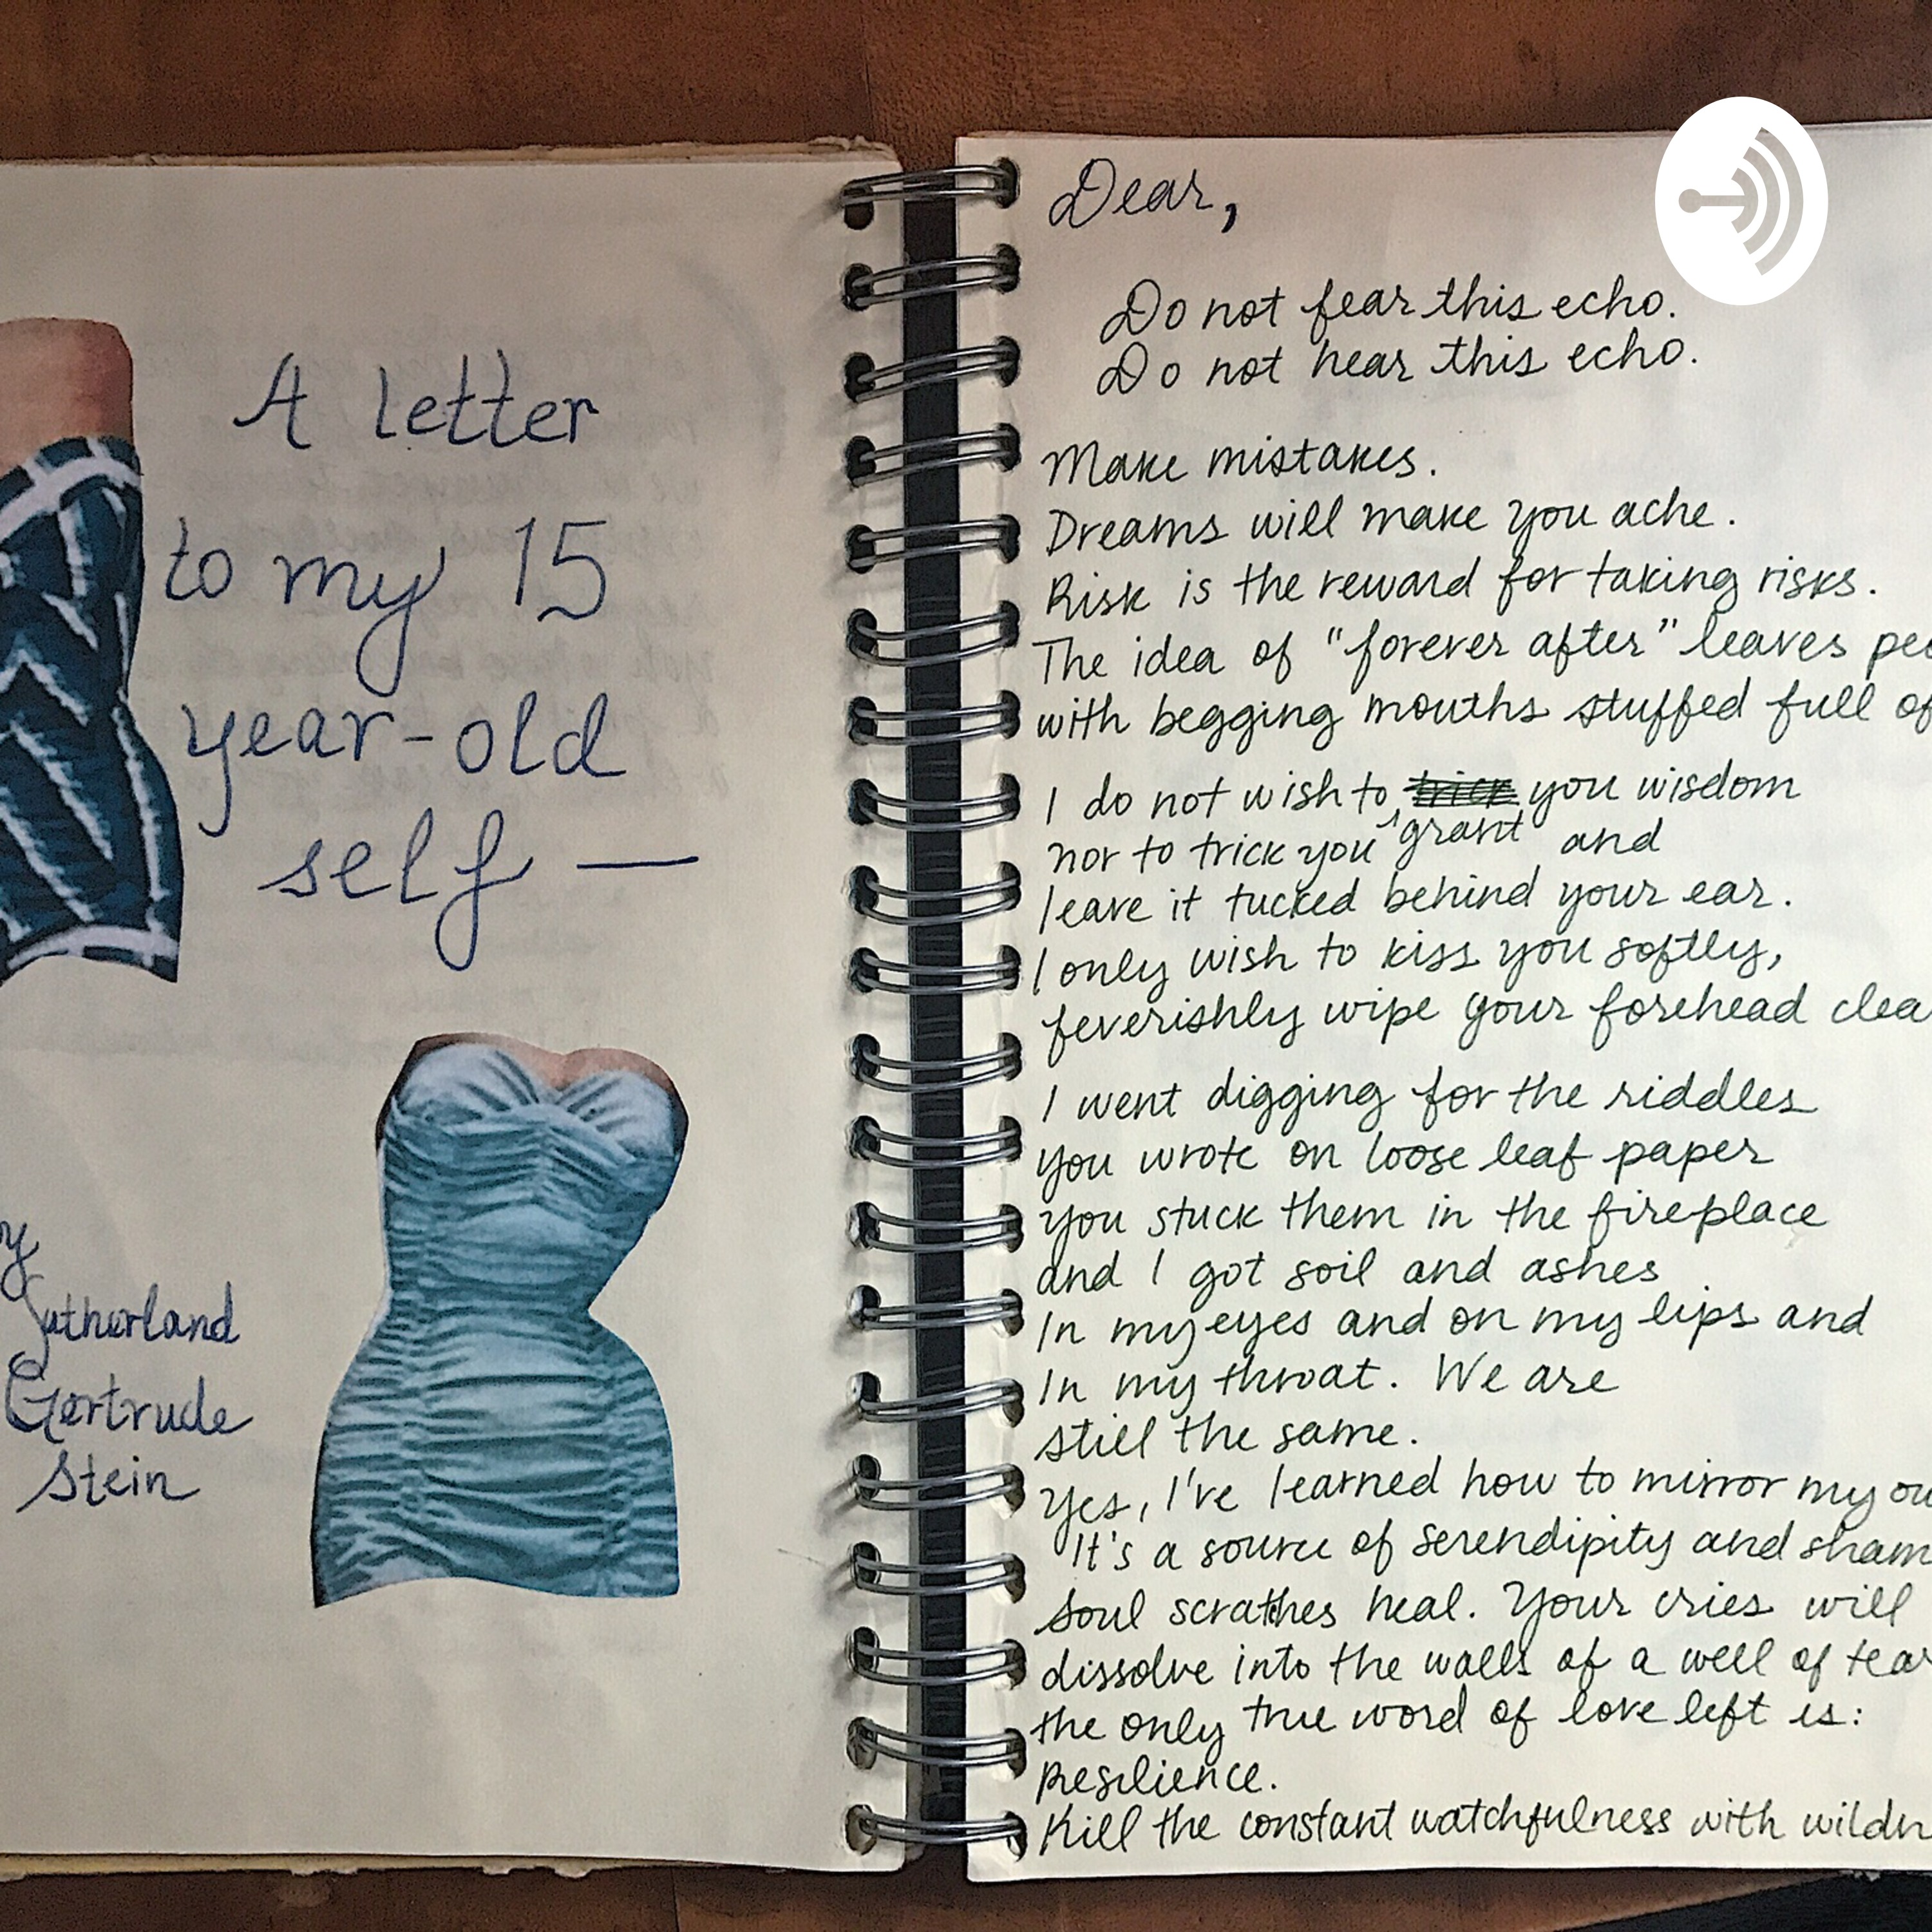 A letter
to my 15
year-old
self —
Gertrude
Stein
Dear,
Do not fear this echo.
Do not hear this echo.
Make mistakes.
Dreams will make you ache.
Risk is the reward for taking risks.
The idea of "forever after" leaves
with begging mouths stuffed full of
I do not wish to grant you wisdom
nor to trick you and
leave it tucked behind your ear.
I only wish to kiss you softly,
feverishly wipe your forehead
I went digging for the riddles
you wrote on loose leaf paper
you stuck them in the fireplace
and I got soil and ashes
In my eyes and on my lips and
In my throat. We are
still the same.
Yes, I've learned how to mirror my
It's a source of serendipity and
Soul scratches heal. Your cries will
dissolve into the walls of a well of
the only true word of love left is:
Resilience.
Kill the constant watchfulness with